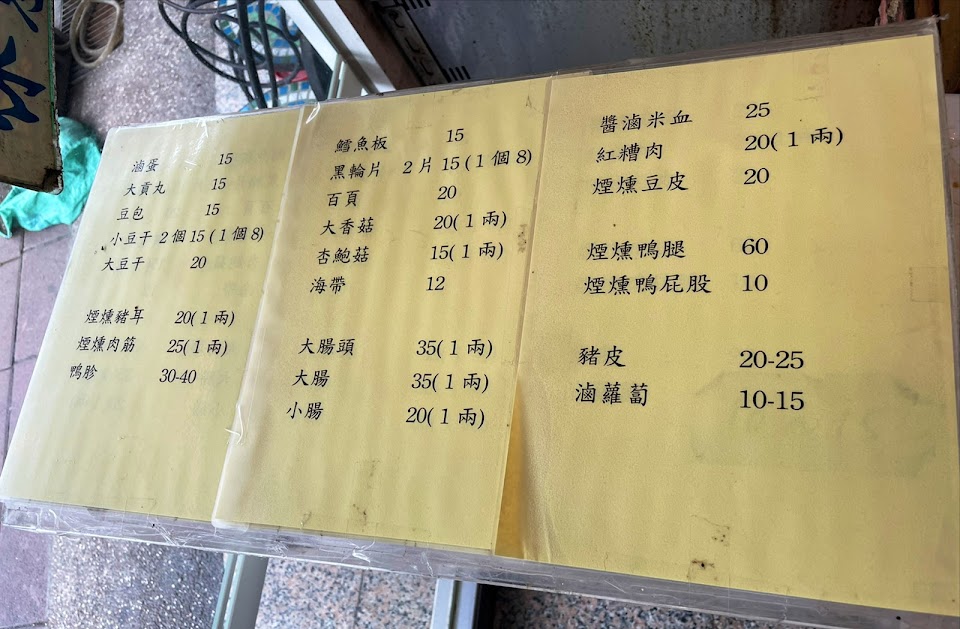 滷蛋 15
大貢丸 15
豆包 15
小豆干 2個15(1個8)
大豆干 20
煙燻豬耳 20(1兩)
煙燻肉筋 25(1兩)
鴨胗 30-40
鱈魚板 15
黑輪片 2片15(1個8)
百頁 20
大香菇 20(1兩)
杏鮑菇 15(1兩)
海帶 12
大腸頭 35(1兩)
大腸 35(1兩)
小腸 20(1兩)
醬滷米血 25
紅糟肉 20(1兩)
煙燻豆皮 20
煙燻鴨腿 60
煙燻鴨屁股 10
豬皮 20-25
滷蘿蔔 10-15